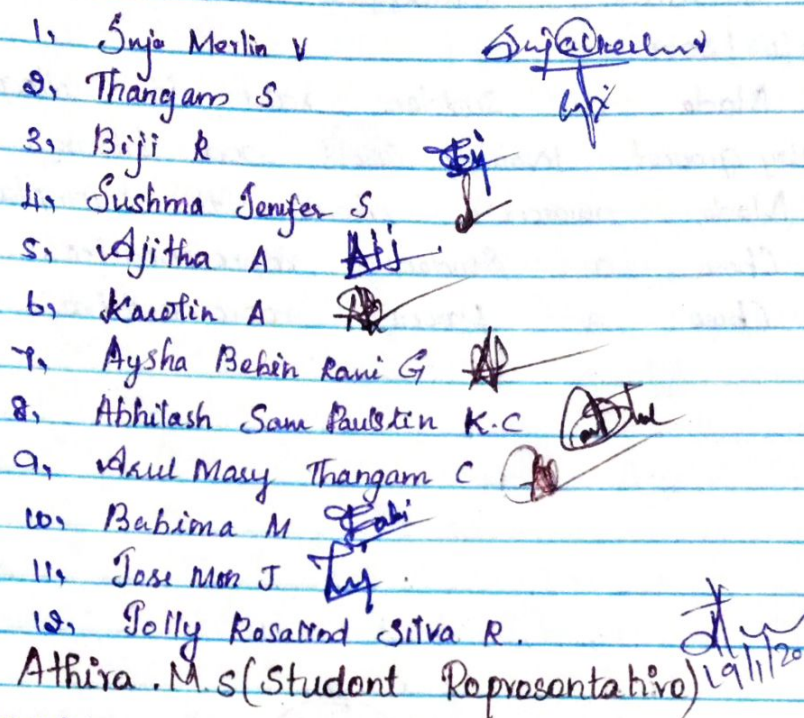 1, Suja Merlin V
2, Thangam S
3, Biji R
4, Sushma Jenifer S
5, Ajitha A
6, Karolin A
7, Aysha Bebin Rani G
8, Abhilash Sam Paulstin K.C
9, Arul Mary Thangam C
10, Babima M
11, Jose Mon J
12, Jolly Rosalind Silva R.
Athira . M. S (Student Representative) 19/1/20